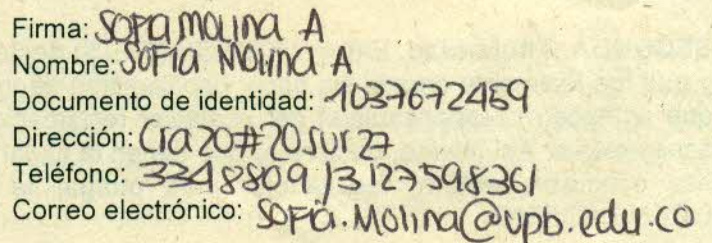 Firma: Sofia Molina A
Nombre: Sofia Molina A
Documento de identidad: 1037672459
Dirección: Cra 20 # 20 sur 27
Teléfono: 3348809 / 3127598361
Correo electrónico: sofia.molina@upb.edu.co